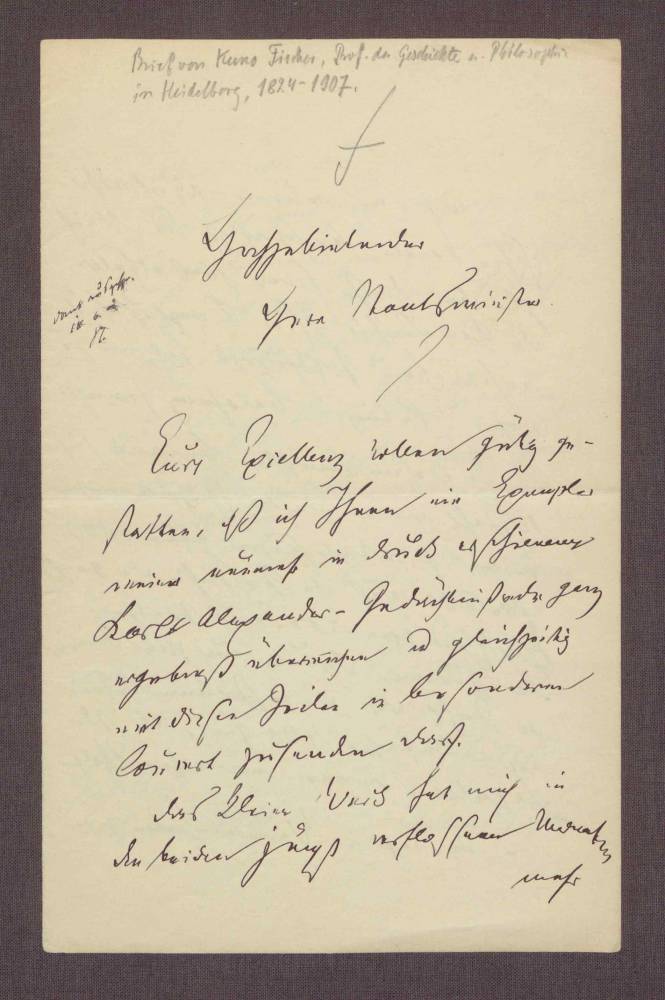 Brief von Kuno Fischer, Prof. der Geschichte u. Philosophie
in Heidelberg, 1824-1907.
Hochgebietender
Herr Staatsminister
Eure Excellenz wollen gütig ge-
statten, daß ich Ihnen ein Exemplar
meiner nunmehr in Druck erschienenen
Karl Alexander-Gedächtnißrede ganz
ergebenst überreichen und gleichzeitig
mit diesen Zeilen in besonderem
Couvert zusenden darf.
Das kleine Werk hat mich in
den beiden jüngst verflossenen Monaten
mehr